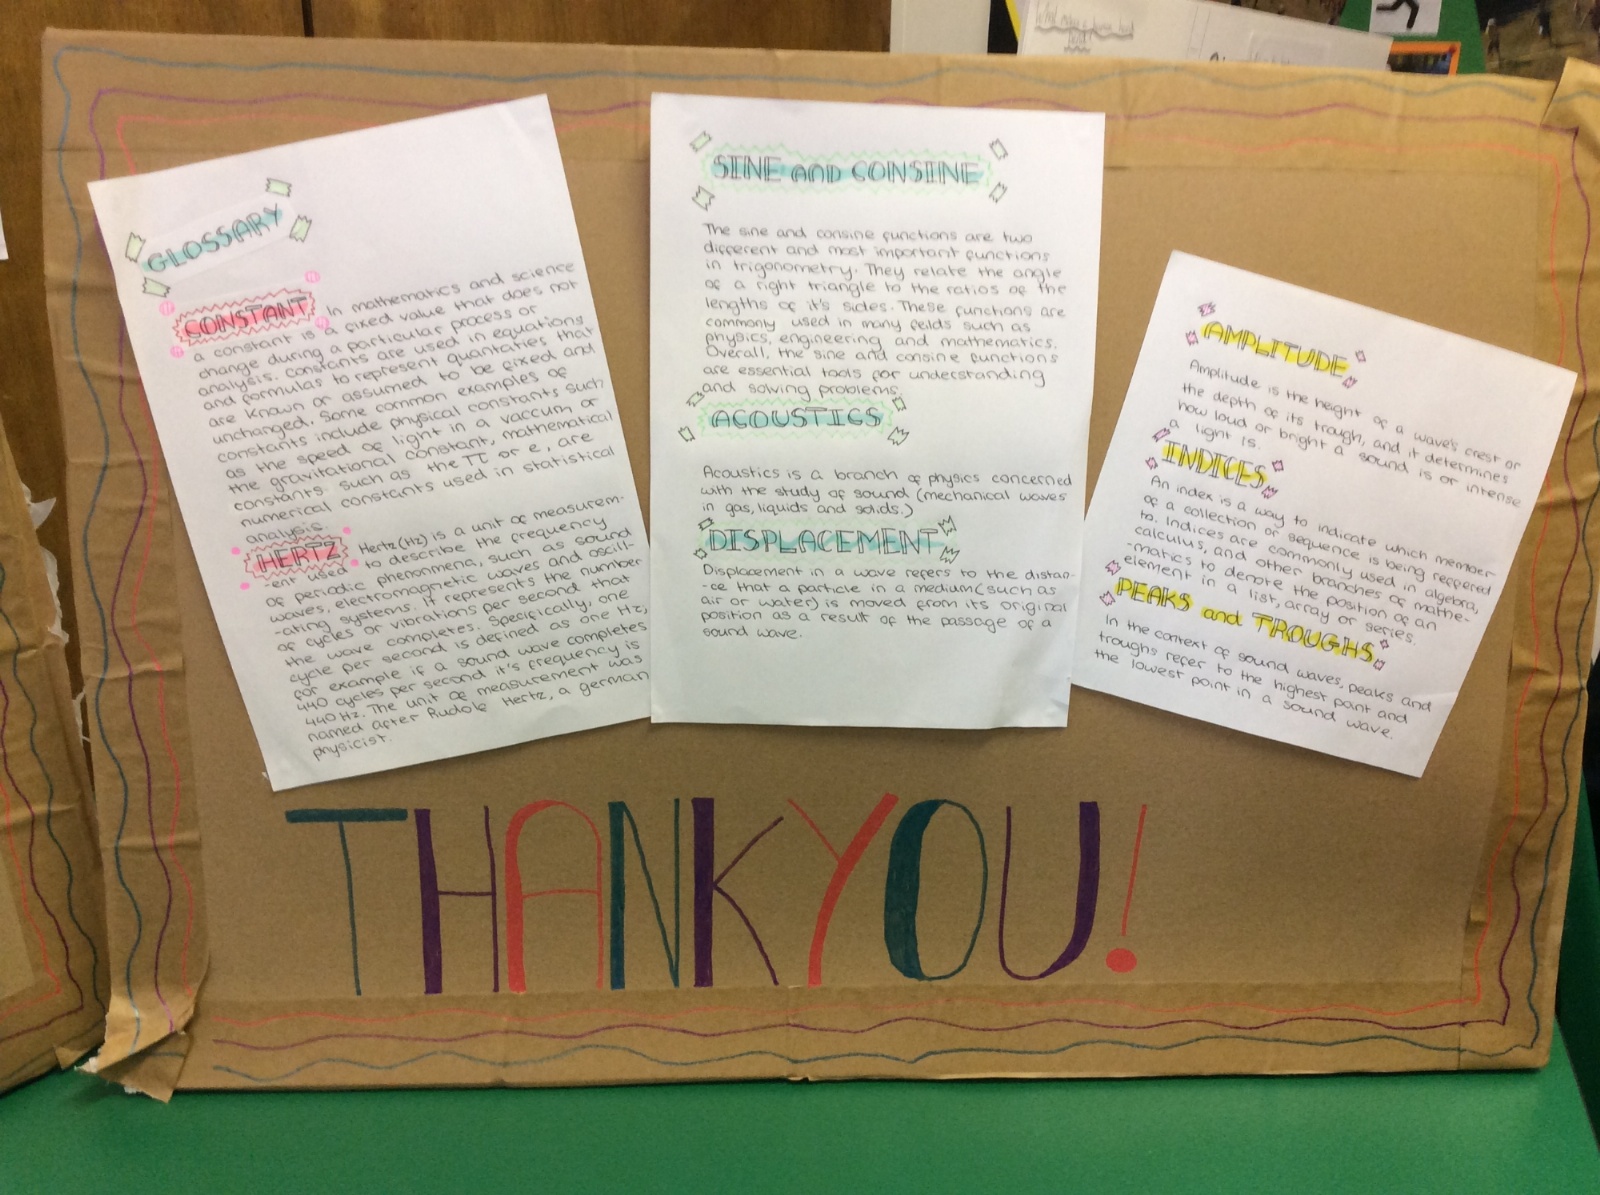 GLOSSARY
CONSTANT In mathematics and science
a constant is a fixed value that does not
change during a particular process or
analysis. Constants are used in equations
and formulas to represent quantaties that
are known or assumed to be fixed and
unchanged. Some common examples of
constants include physical constants such
as the speed of light in a vaccum or
the gravitational constant, mathematical
constants. such as the π or e, are
numerical constants used in statistical
analysis.
HERTZ Hertz (Hz) is a unit of measurem-
-ent used to describe the frequency
of periodic phenomena, such as sound
waves, electromagnetic waves and oscill-
-ating systems. It represents the number
of cycles or vibrations per second that
the wave completes. Specifically, one
cycle per second is defined as one Hz,
for example if a sound wave completes
440 cycles per second it's frequency is
440 Hz. The unit of measurement was
named after Rudolf Hertz, a german
physicist.
SINE AND CONSINE
The sine and consine functions are two
different and most important functions
in trigonometry. They relate the angle
of a right triangle to the ratios of the
lengths of it's sides. These functions are
commonly used in many feilds such as
physics, engineering and mathematics.
Overall, the sine and consine functions
are essential tools for understanding
and solving problems.
ACOUSTICS
Acoustics is a branch of physics concerned
with the study of sound (mechanical waves
in gas, liquids and solids.)
DISPLACEMENT
Displacement in a wave refers to the distan-
-ce that a particle in a medium (such as
air or water) is moved from its original
position as a result of the passage of a
sound wave.
AMPLITUDE
Amplitude is the height of a wave's crest or
the depth of its trough, and it determines
how loud or bright a sound is or intense
a light is.
INDICES
An index is a way to indicate which member
of a collection or sequence is being reffered
to. Indices are commonly used in algebra,
calculus, and other branches of mathe-
-matics to denote the position of an
element in a list, array or series.
PEAKS and TROUGHS
In the context of sound waves, peaks and
troughs refer to the highest point and
the lowest point in a sound wave.
THANKYOU!